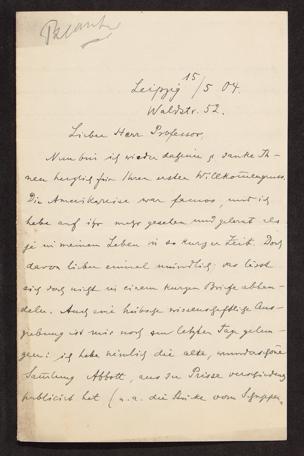 Leipzig 15/5 04.
Waldstr. 52.
Lieber Herr Professor,
Nun bin ich wieder daheim u. danke Ih-
nen herzlich für Ihren ersten Willkommengruss.
Die Amerikareise war famos, und ich
habe auf ihr mehr gesehen und gelernt als
je in meinem Leben in so kurzer Zeit. Doch
davon lieber einmal mündlich; das lässt
sich doch nicht in einem kurzen Briefe abhan-
deln. Auch eine hübsche wissenschaftliche Aus-
grabung ist mir noch am letzten Tag gelun-
gen: ich habe nämlich die alte, wunderschöne
Sammlung Abbott, aus der Prisse
publiciert hat (u. a. die Stücke vom